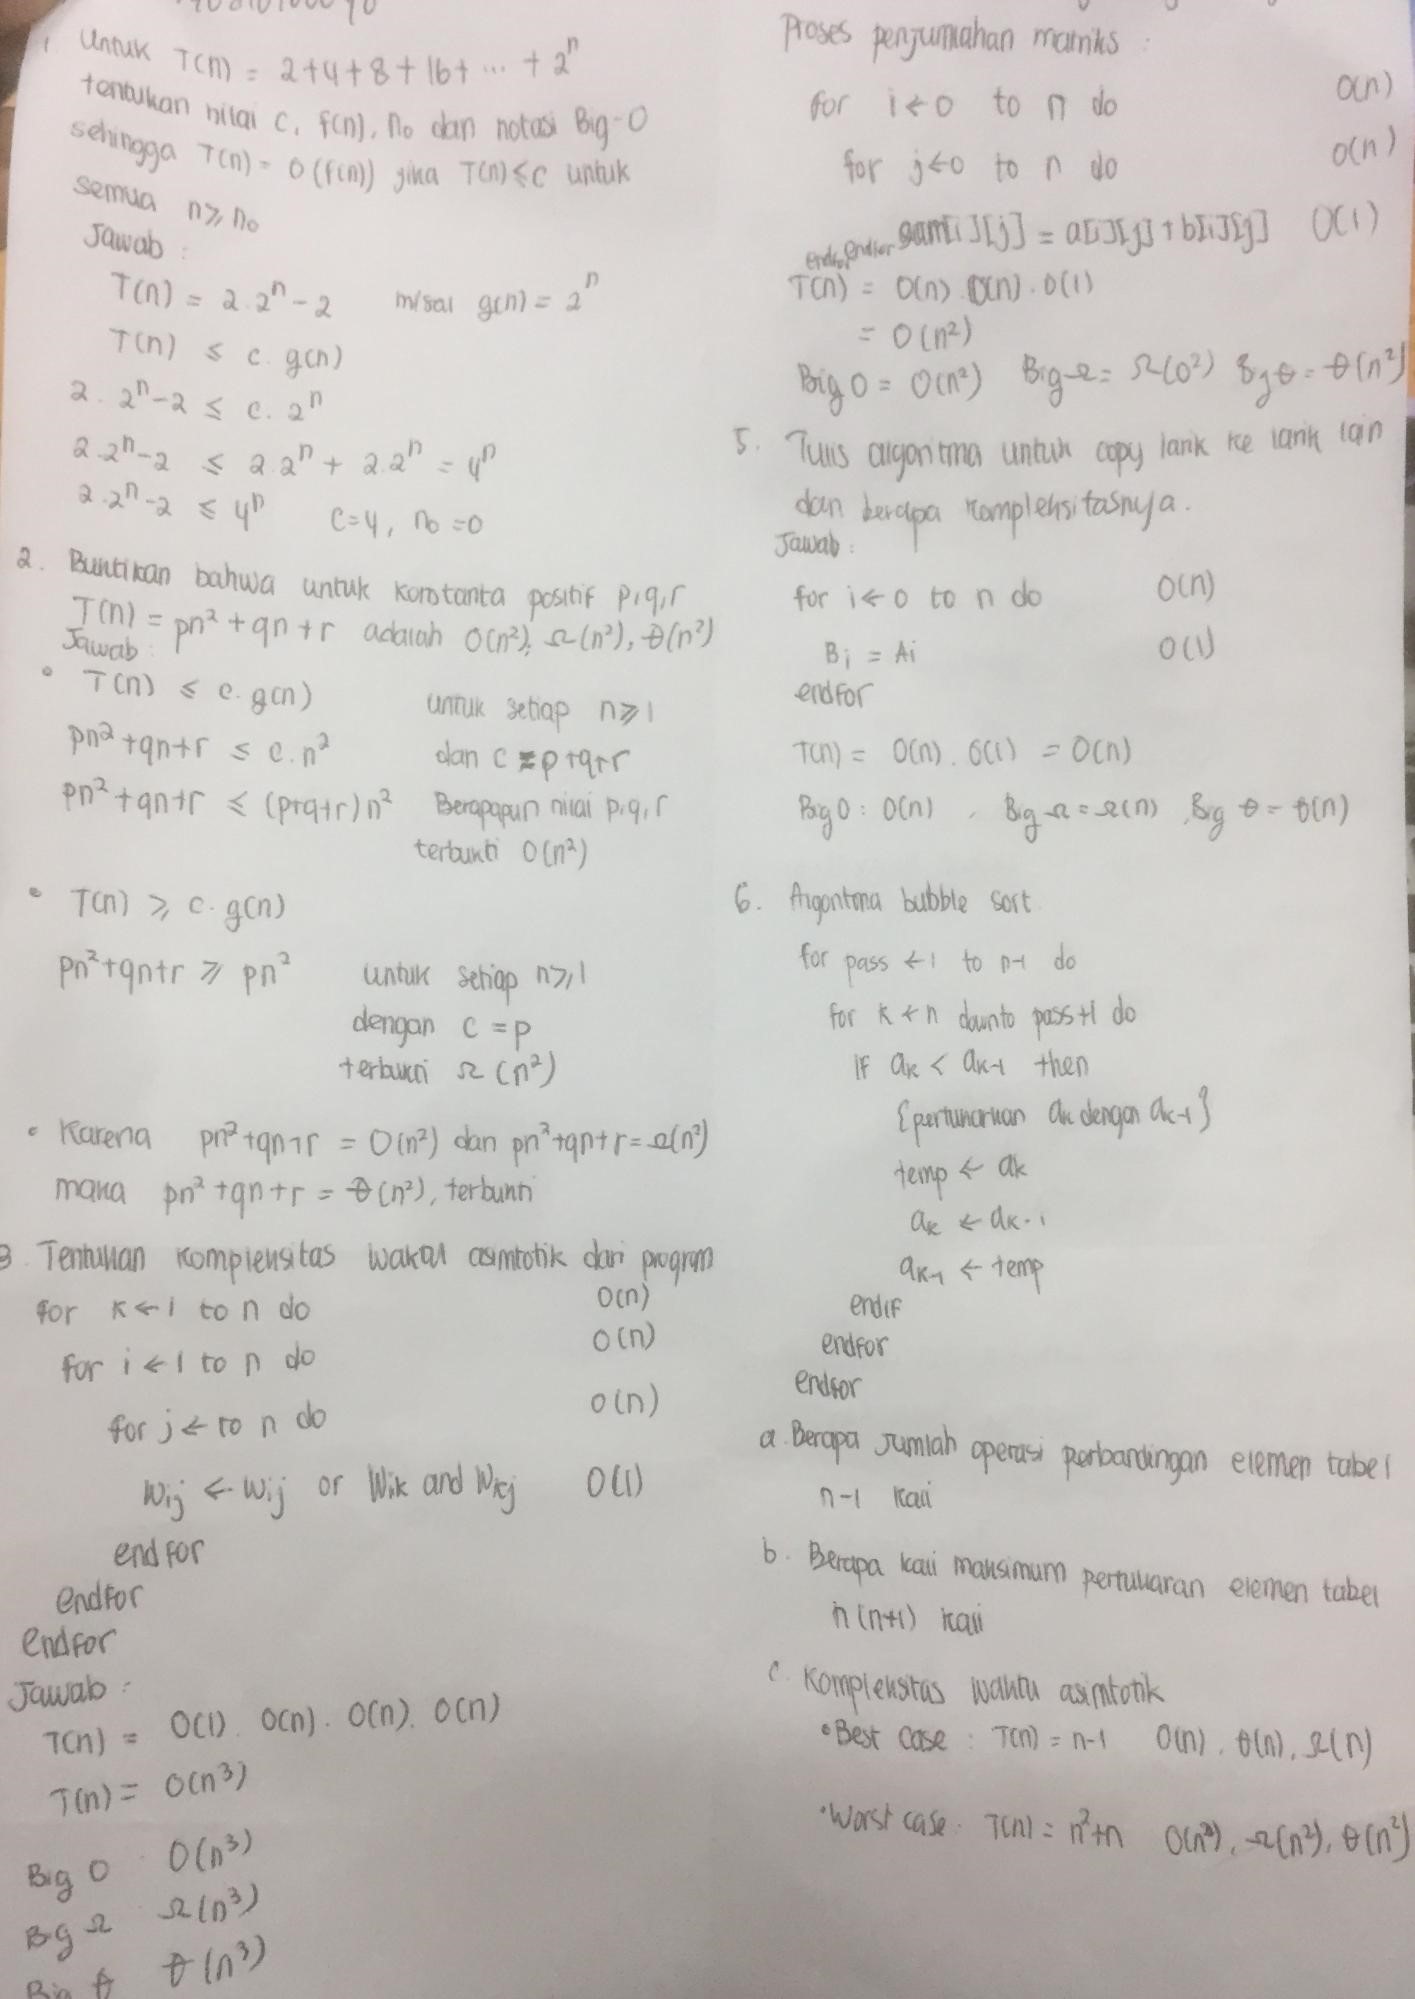 1. Untuk T(n) = 2+4+8+16+ ... + 2ⁿ
tentukan nilai c, f(n), n₀ dan notasi Big-O
sehingga T(n) = O(f(n)) jika T(n) ≤ C untuk
semua n ≥ n₀
Jawab :
T(n) = 2.2ⁿ - 2 misal g(n) = 2ⁿ
T(n) ≤ c. g(n)
2. 2ⁿ-2 ≤ c. 2ⁿ
2.2ⁿ-2 ≤ 2.2ⁿ + 2.2ⁿ = 4ⁿ
2.2ⁿ-2 ≤ 4ⁿ c=4, n₀ =0
2. Buktikan bahwa untuk konstanta positif p,q,r
T(n) = pn²+qn+r adalah O(n²), Ω(n²), θ(n²)
Jawab :
• T(n) ≤ c. g(n) untuk setiap n ≥ 1
pn²+qn+r ≤ c.n² dan c = p+q+r
pn²+qn+r ≤ (p+q+r)n² Berapapun nilai p,q,r
terbukti O(n²)
• T(n) ≥ c. g(n)
pn²+qn+r ≥ pn² untuk setiap n ≥ 1
dengan c = p
terbukti Ω (n²)
• Karena pn²+qn+r = O(n²) dan pn²+qn+r = Ω(n²)
maka pn²+qn+r = θ(n²), terbukti
3. Tentukan kompleksitas waktu asimtotik dari program
for k ← 1 to n do O(n)
for i ← 1 to n do O(n)
for j ← to n do O(n)
Wij ← Wij or Wik and Wkj O(1)
endfor
endfor
endfor
Jawab :
T(n) = O(1). O(n). O(n). O(n)
T(n) = O(n³)
Big O O(n³)
Big Ω Ω(n³)
Big θ θ(n³)
Proses penjumlahan matriks :
for i ← 0 to n do O(n)
for j ← 0 to n do O(n)
gam[i][j] = a[i][j] + b[i][j] O(1)
endfor endfor
T(n) = O(n). O(n). O(1)
= O(n²)
Big O = O(n²) Big Ω = Ω(0²) Big θ = θ(n²)
5. Tulis algoritma untuk copy larik ke larik lain
dan berapa kompleksitasnya.
Jawab :
for i ← 0 to n do O(n)
Bi = Ai O(1)
endfor
T(n) = O(n). O(1) = O(n)
Big O : O(n) , Big Ω = Ω(n) , Big θ = θ(n)
6. Algoritma bubble sort
for pass ← 1 to n-1 do
for k ← n downto pass+1 do
if ak < ak-1 then
{pertukarkan ak dengan ak-1}
temp ← ak
ak ← ak-1
ak-1 ← temp
endif
endfor
endfor
a. Berapa jumlah operasi perbandingan elemen tabel
n-1 kali
b. Berapa kali maksimum pertukaran elemen tabel
n(n+1) kali
c. Kompleksitas waktu asimtotik
• Best case : T(n) = n-1 O(n), θ(n), Ω(n)
• Worst case : T(n) = n²+n O(n²), Ω(n²), θ(n²)